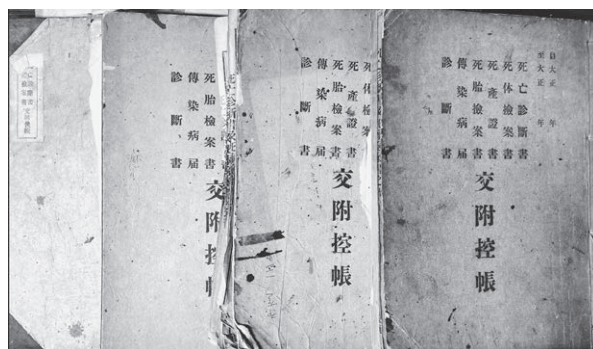 自大正 年
至大正 年
死亡診斷書
死体檢案書
死產證書
死胎檢案書
傳染病届
診斷書
交附控帳
死体檢案
死產證書
死胎檢案書
傳染病届
診斷書
交附控帳
死胎檢案書
傳染病届
診斷書
交附控